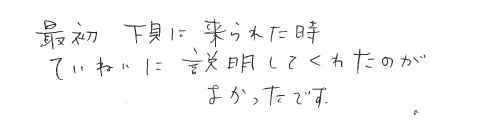 最初 下見に 来られた時
ていねいに 説明してくれたのが
よかったです.